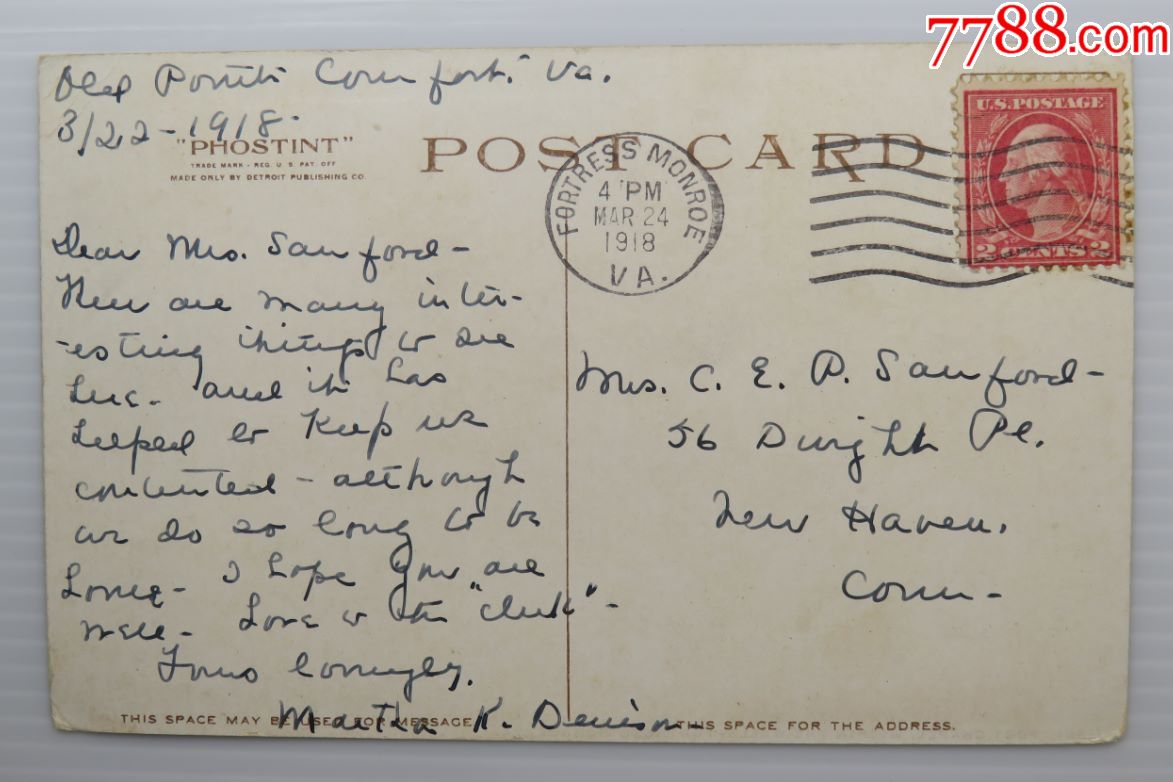 7788.com
Old Point Comfort. Va.
3/22-1918.
"PHOSTINT"
TRADE MARK - REG. U. S. PAT. OFF
MADE ONLY BY DETROIT PUBLISHING CO.
POST CARD
FORTRESS MONROE
4 PM
MAR 24
1918
VA.
U.S. POSTAGE
2 CENTS 2
Dear Mrs. Sanford -
Here are many inter-
-esting things to see
here. and it has
helped to keep us
contented - although
we do so long to be
home - I hope you are
well - Love to the "club" -
Yours lovingly,
Martha K. Denison -
Mrs. C. E. P. Sanford -
56 Dwight Pl.
New Haven.
Conn -
THIS SPACE MAY BE USED FOR MESSAGE
THIS SPACE FOR THE ADDRESS.